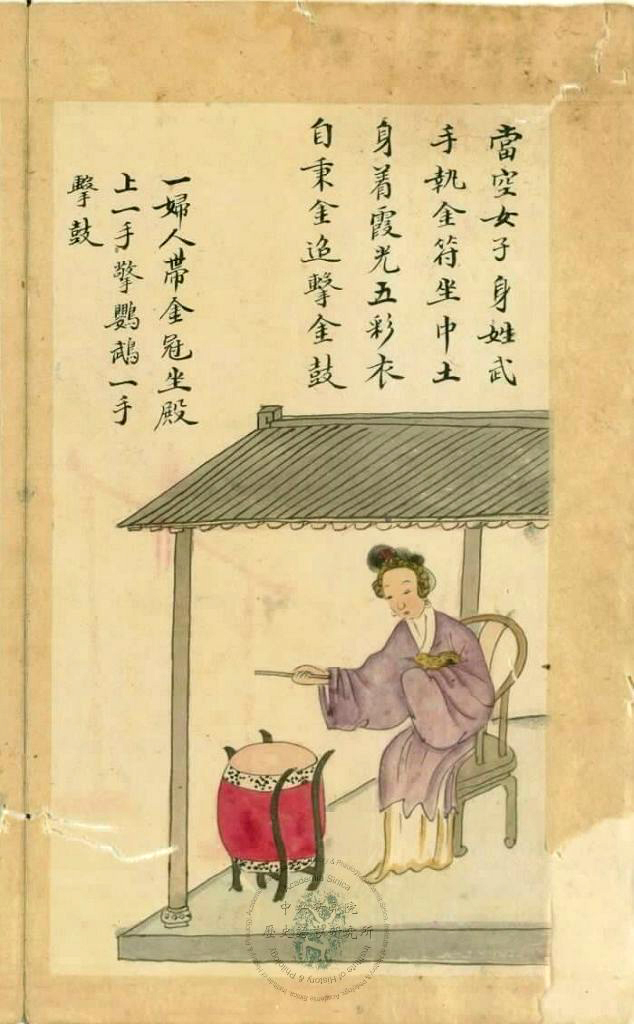 當空女子身姓武
手執金符坐中土
身着霞光五彩衣
自秉金追擊金鼓
一婦人帶金冠坐殿
上一手擎鸚鵡一手
擊鼓
中央研究院
歷史語言研究所
Academia Sinica
Institute of History & Philology